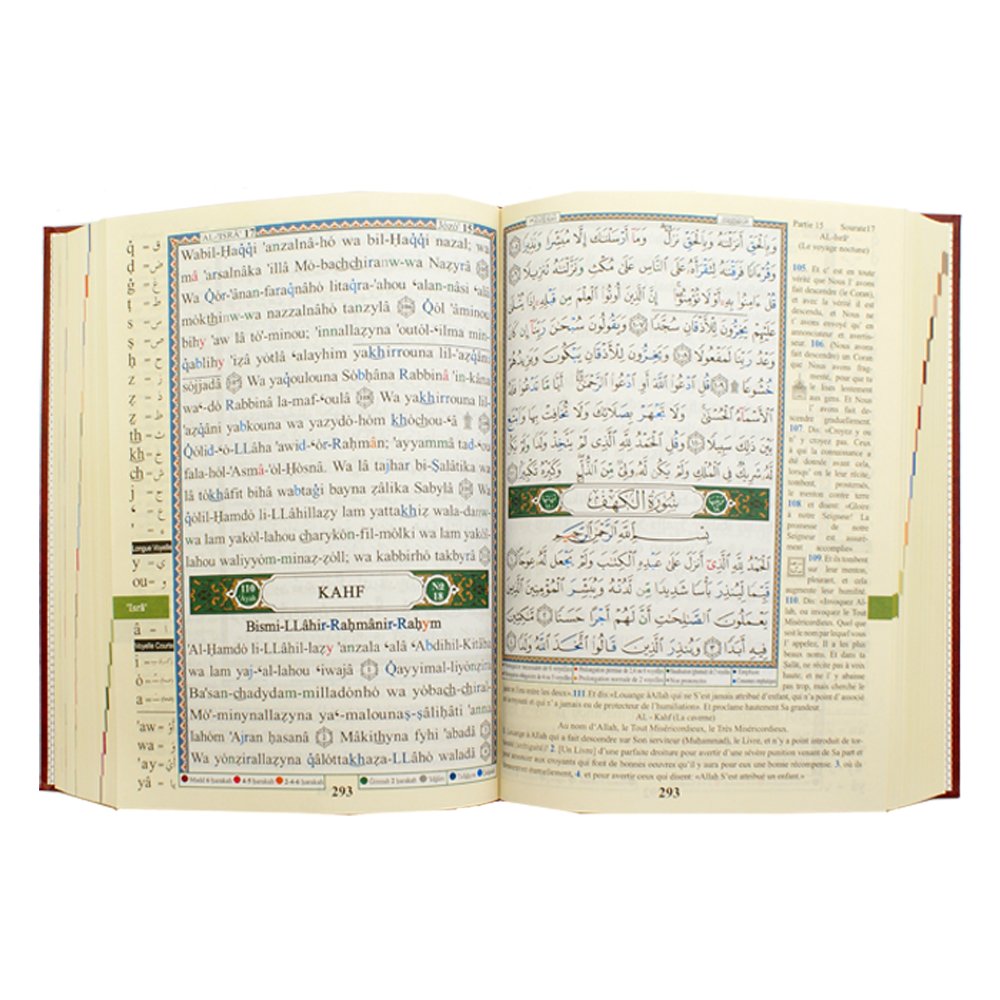 AL-'ISRÂ' 17 Jozo' 15
Wabil-Ḥaq̇q̇i 'anzalnâ-hó wa bil-Ḥaq̇q̇i nazal; wa
mâ 'arsalnâka 'illâ Mó-bachchiranw-wa Naẓyrâ
wa Q̇ór-'ânan-faraq̇nâho litaq̇ra-'ahou ʻalan-nâsi ʻalâ
mókthinw-wa nazzalnâhó tanzylâ Q̇ól 'âminou
bihy 'aw lâ tó'-minou; 'innallaẓyna 'outól-ʻilma min-
q̇ablihy 'iẓâ yótlâ ʻalayhim yakhirrouna lil-'aẓq̇âni
sójjadâ Wa yaq̇oulouna Sóbḥâna Rabbinâ 'in-kâna
waʻ-dó Rabbinâ la-maf-ʻoulâ Wa yakhirrouna lil-
'aẓq̇âni yabkouna wa yazydó-hóm khóchou-ʻâ
Q̇ólid-ʻó-LLâha 'awid-ʻór-Raḥmân; 'ayyammâ tad-ʻou
fala-hól-'Asmâ-'ól-Ḥósnâ. Wa lâ tajhar bi-Ṣalâtika wa
lâ tókhâfit bihâ wabtaġi bayna ẓâlika Sabylâ Wa
q̇ólil-Ḥamdó li-LLâhillaẓy lam yattakhiẓ wala-danw-
wa lam yakól-lahou charykón-fil-mólki wa lam yakól-
lahou waliyyóm-minaẓ-ẓóll; wa kabbirho takbyrâ
110 Ayah KAHF No 18
Bismi-LLâhir-Raḥmânir-Raḥym
'Al-Ḥamdó li-LLâhil-laẓy 'anzala ʻalâ ʻAbdihil-Kitâba
wa lam yaj-ʻal-lahou ʻiwajâ Q̇ayyimal-liyónẓira
Ba'san-chadydam-milladónhó wa yóbach-chiral-
Mó'-minynallaẓyna yaʻ-malounaṣ-ṣâliḥâti 'anna
lahóm 'Ajran ḥasanâ Mâkithyna fyhi 'abadâ
Wa yónẓirallaẓyna q̇âlóttakhaẓa-LLâhó waladâ
293
q̇ ق
ḍ ض
ġ غ
ṭ ط
s س
ṣ ص
ḥ ح
z ز
ẓ ذ
th ث
kh خ
ch ش
j ج
ʻ ع
' ء
Longue Voyelle
y ي
ou و
'Isrâ'
â
Voyelle Courte
i
ó
a
'aw أَو
wa و
'ay أي
yâ يا
وَبِالْحَقِّ أَنزَلْنَاهُ وَبِالْحَقِّ نَزَلَ وَمَا أَرْسَلْنَاكَ إِلَّا مُبَشِّرًا وَنَذِيرًا ١٠٥
وَقُرْءَانًا فَرَقْنَاهُ لِتَقْرَأَهُ عَلَى النَّاسِ عَلَى مُكْثٍ وَنَزَّلْنَاهُ تَنزِيلًا ١٠٦
قُلْ ءَامِنُوا بِهِ أَوْ لَا تُؤْمِنُوا إِنَّ الَّذِينَ أُوتُوا الْعِلْمَ مِن قَبْلِهِ إِذَا يُتْلَى
عَلَيْهِمْ يَخِرُّونَ لِلْأَذْقَانِ سُجَّدًا ١٠٧ وَيَقُولُونَ سُبْحَانَ رَبِّنَا إِن كَانَ
وَعْدُ رَبِّنَا لَمَفْعُولًا ١٠٨ وَيَخِرُّونَ لِلْأَذْقَانِ يَبْكُونَ وَيَزِيدُهُمْ
خُشُوعًا ١٠٩ قُلِ ادْعُوا اللَّهَ أَوِ ادْعُوا الرَّحْمَٰنَ أَيًّا مَّا تَدْعُوا فَلَهُ
الْأَسْمَاءُ الْحُسْنَى وَلَا تَجْهَرْ بِصَلَاتِكَ وَلَا تُخَافِتْ بِهَا وَابْتَغِ
بَيْنَ ذَٰلِكَ سَبِيلًا ١١٠ وَقُلِ الْحَمْدُ لِلَّهِ الَّذِي لَمْ يَتَّخِذْ وَلَدًا وَلَمْ يَكُن
لَّهُ شَرِيكٌ فِي الْمُلْكِ وَلَمْ يَكُن لَّهُ وَلِيٌّ مِّنَ الذُّلِّ وَكَبِّرْهُ تَكْبِيرًا ١١١
سُورَةُ الْكَهْفِ
بِسْمِ اللَّهِ الرَّحْمَٰنِ الرَّحِيمِ
الْحَمْدُ لِلَّهِ الَّذِي أَنزَلَ عَلَى عَبْدِهِ الْكِتَابَ وَلَمْ يَجْعَل لَّهُ عِوَجًا ١
قَيِّمًا لِّيُنذِرَ بَأْسًا شَدِيدًا مِّن لَّدُنْهُ وَيُبَشِّرَ الْمُؤْمِنِينَ الَّذِينَ
يَعْمَلُونَ الصَّالِحَاتِ أَنَّ لَهُمْ أَجْرًا حَسَنًا ٢ مَّاكِثِينَ
فِيهِ أَبَدًا ٣ وَيُنذِرَ الَّذِينَ قَالُوا اتَّخَذَ اللَّهُ وَلَدًا ٤
Partie 15 Sourate17
AL-Isrâ'
(Le voyage noctune)
105. Et c' est en toute
vérité que Nous l' avons
fait descendre (le Coran),
et avec la vérité il est
descendu, et Nous ne
t' avons envoyé qu' en
annonciateur et avertis-
seur. 106. (Nous avons
fait descendre) un Coran
que Nous avons frag-
menté, pour que tu
le lises lentement
aux gens. Et Nous
l' avons fait
descendre graduellement.
107. Dis: «Croyez y ou
n' y croyez pas. Ceux
à qui la connaissance a
été donnée avant cela,
lorsqu' on le leur récite,
tombent, prosternés,
le menton contre terre
108. et disent: «Gloire
à notre Seigneur! La
promesse de notre
Seigneur est assuré-
ment accomplie»
109. Et ils tombent
sur leur menton,
pleurant, et cela
augmente leur humilité.
110. Dis: «Invoquez Al-
lah, ou invoquez le Tout
Miséricordieux. Quel que
soit le nom par lequel vous
l' appelez, Il a les plus
beaux noms. Et dans ta
Salât, ne récite pas à voix
haute; et ne l'y abaisse
pas trop, mais cherche le
juste mi-lieu entre les deux» 111 Et dis: «Louange à Allah qui ne S'est jamais attribué d'enfant, qui n'a point d'associé
et qui n'a jamais eu de protecteur de l'humiliation». Et proclame hautement Sa grandeur.
AL - Kahf (La caverne)
Au nom d'Allah, le Tout Miséricordieux, le Très Miséricordieux.
Louange à Allah qui a fait descendre sur Son serviteur (Muhammad), le Livre, et n'y a point introduit de tor-
(ambiguïté) 2. [Un Livre] d'une parfaite droiture pour avertir d'une sévère punition venant de Sa part et
annoncer aux croyants qui font de bonnes oeuvres qu'il y aura pour eux une bonne récompense. 3. où ils
éternellement, 4. et pour avertir ceux qui disent: «Allah S'est attribué un enfant.»
293